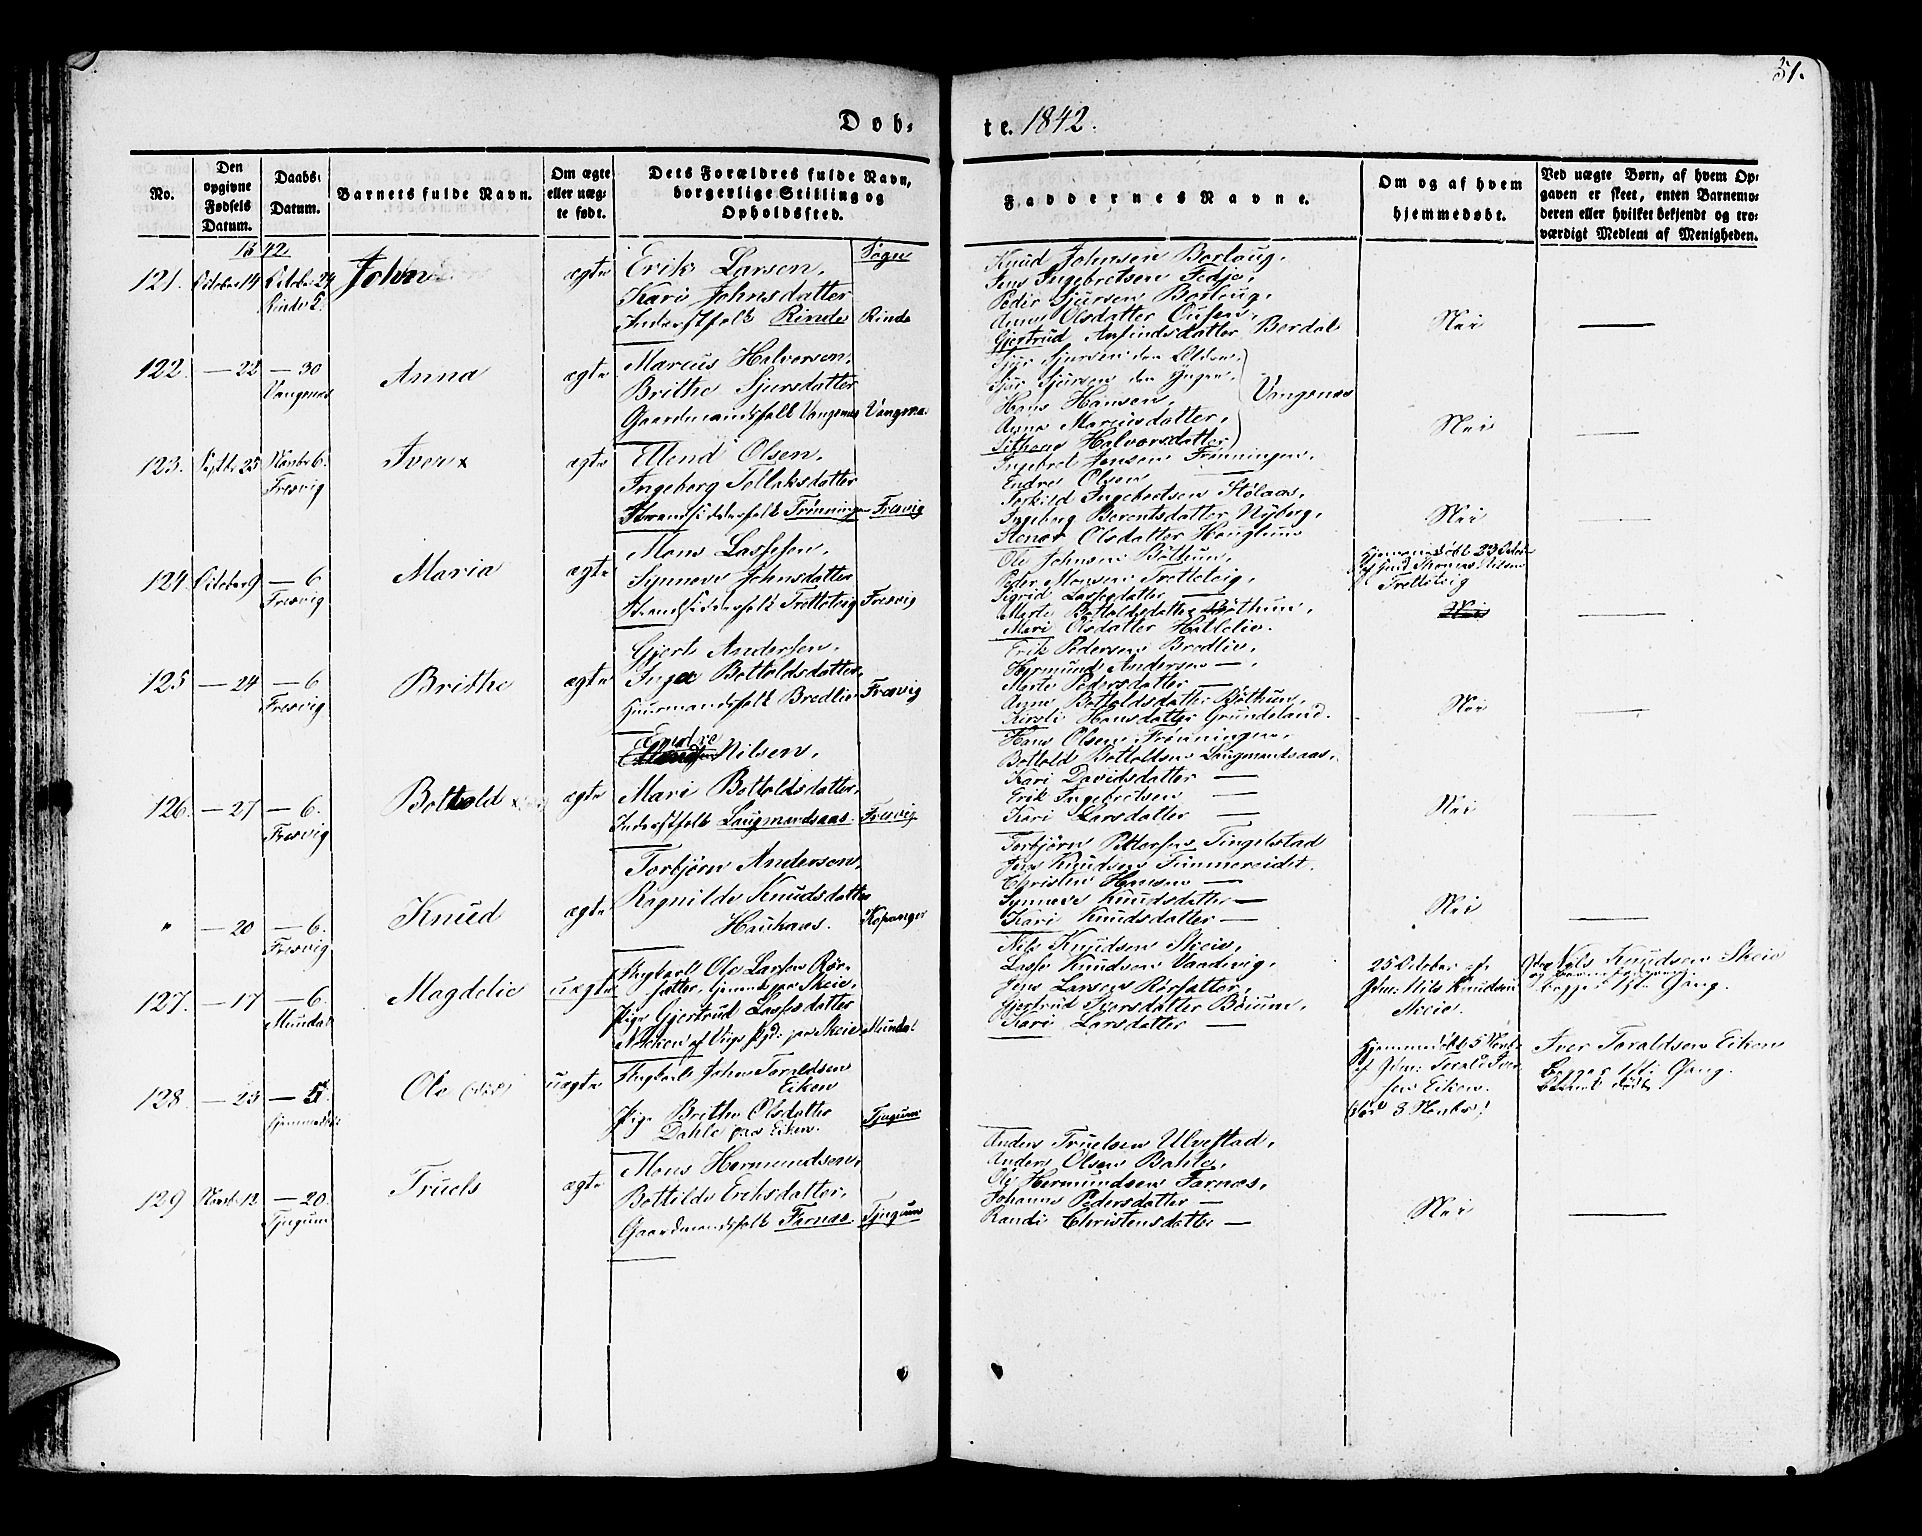 51.
Døb-
te. 1842.
No.
Den opgivne Fødsels Datum.
Daabs-Datum.
Barnets fulde Navn.
Om ægte eller uægte født.
Dets Forældres fulde Navn, borgerlige Stilling og Opholdssted.
Faddernes Navne.
Om og af hvem hjemmedøbt.
Ved uægte Børn, af hvem Opgaven er skeet, enten Barnemoderen eller hvilket bekjendt og troværdigt Medlem af Menigheden.
1842.
Sogn
121. October 14 October 24 Rinde
John
ægte
Erik Larsen,
Kari Johnsdatter
Inderstfolk Rinde
Rinde
Knud Johnsen Borlaug,
Jens Ingebretsen Fedje,
Peder Sjursen Borlaug,
Anna Olsdatter
Gjertrud Anfindsdatter Bordal
Nei
122. — 22 — 30 Vangsnes
Anna
ægte
Marcus Halvorsen,
Brithe Sjursdatter
Gaardmandsfolk Vangsnes
Vangsnes
Sjur Sjursen den Ældre,
Sjur Sjursen den Yngre,
Hans Hansen,
Anna Marcusdatter,
Halvorsdatter
Vangsnes
Nei
123. Septbr 25 Novbr 6. Fresvig
Iver x
ægte
Ellend Olsen,
Ingeborg Tollaksdatter
Strandsidderfolk Trønningen
Fresvig
Ingebret Jensen Frønningen,
Endre Olsen —
Terkild Ingebretsen Stølaas,
Ingeborg Berentsdatter Nyborg,
Olsdatter Hauglum
Nei
124. October 9 — 6 Fresvig
Maria
ægte
Mons Lassesen,
Synneve Johnsdatter
Strandsidderfolk Trotteteig
Fresvig
Ole Johnsen Bøthun,
Peder Monsen Trotteteig,
Sigrid Lassesdatter —
Marte Bottolsdatter Bøthun,
Mari Olsdatter Hatlelie.
Hjemmedøbt 23 Octbr
af Thomas Nilsen
Trotteteig
Nei
125 — 24 — 6 Fresvig
Brithe
ægte
Gjert Andersen,
Inga Bottoldsdatter,
Huusmandsfolk Bredlie
Fresvig
Erik Pedersen Bredlie,
Hermund Andersen —,
Marte Pedersdatter —
Anne Bottoldsdatter Bøthun,
Kirsti Hansdatter Grundeland.
Nei
126. — 27 — 6. Fresvig
Bottold x
ægte
Endre
Nilsen,
Mari Bottoldsdatter,
Inderstfolk Laugmandsaas.
Fresvig
Hans Olsen Frønningen,
Bottold Bottoldsen Laugmandsaas,
Kari Davidsdatter —
Erik Ingebretsen —
Kari Larsdatter —
Nei
" — 20 — 6. Fresvig
Knud
ægte
Torbjørn Andersen,
Ragnilde Knudsdatter
Haukaas.
Kopanger
Torbjørn Pettersen Tingelstad
Jens Knudsen Timmereidet.
Christen Hansen —
Synneve Knudsdatter —
Kari Knudsdatter —
Nei
127. — 17 — 6. Mundal
Magdelie
uægte
Ungkarl Ole Larsen Rør-
sætter,
Pige Gjertrud Lassesdatter
Skeie
Mundal
Nils Knudsen Skeie,
Lasse Knudsen Vaadevig,
Jens Larsen Rørsætter,
Gjertrud Iversdatter Bøium,
Kari Larsdatter —
25 October af
Gdm: Nils Knudsen
Skeie.
Nils Knudsen Skeie
begges 1ste Gang.
128. — 23 — 5. hjemmedøbt
Ole (død)
uægte
Ungkarl John Taraldsen
Eiken
Pige Brithe Olsdatter
Dahle paa Eiken.
Tjugum
Hjemmedøbt 5 Novbr
af Gdm: Torald Iver-
sen Eiken.
8 Novbr
Iver Taraldsen Eiken
Begges 1ste Gang.
129 Novbr 12 — 20. Tjugum
Truels
ægte
Mons Hermundsen,
Bottilde Eriksdatter,
Gaardmandsfolk Farnæs.
Tjugum
Anders Truelsen Ulvestad,
Anders Olsen Dahle,
Ole Hermundsen Farnæs,
Johanne Pedersdatter —
Randi Christensdatter —
Nei